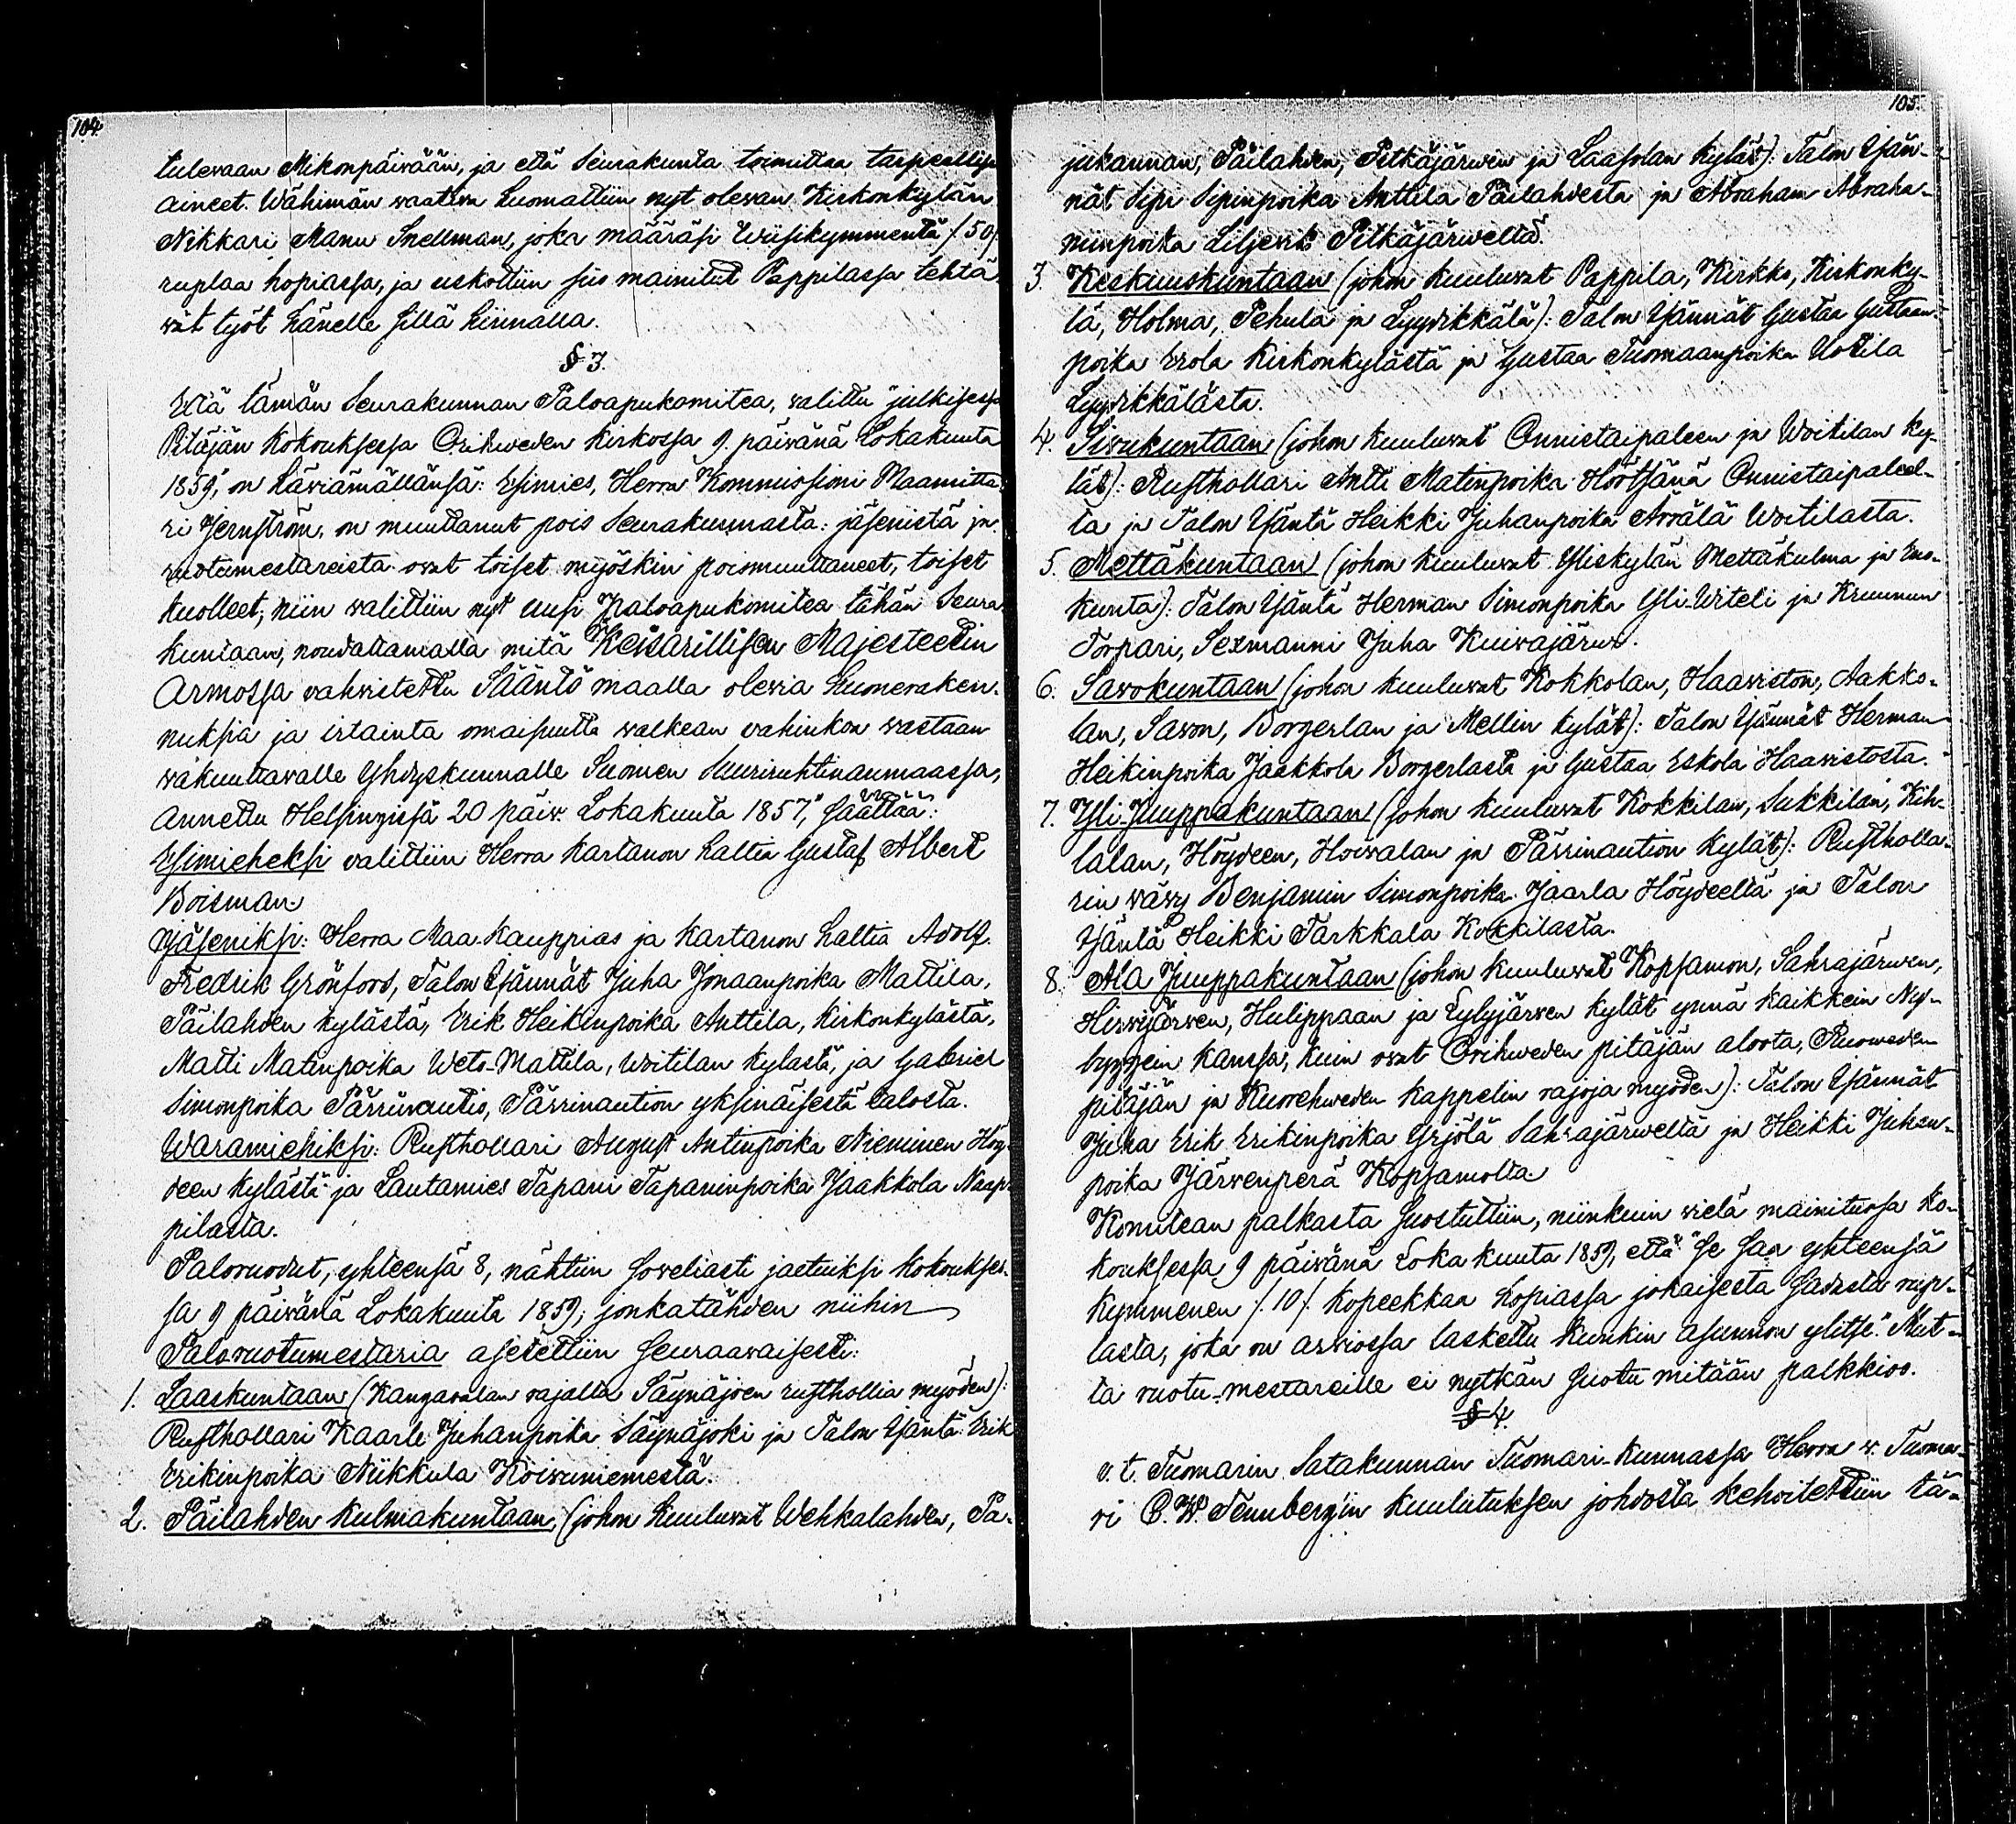 104.
tulevaan Mikonpäivään, ja että Seurakunta toimittaa tarpeellise
aineet. Wähimän vaativa huomattiin nyt olevan Kirkonkylän
Nikkari Manu Snellman, joka määräsi Wiisikymmentä /50/
ruplaa hopiassa, ja uskottiin siis mainitut Pappilassa tehtä-
vät työt hänelle sillä hinnalla.
§ 3.
Että tämän Seurakunnan Paloapukomitea, valittu julkisessa
Pitäjän kokouksessa Orihweden kirkossa 9. päivänä Lokakuuta
1859, on häviämällänsä: Esimies, Herra Kommissioni Maamitta-
ri Jernström, on muuttanut pois Seurakunnasta: jäsenistä ja
ruotumestareista ovat toiset myöskin poismuuttaneet, toiset
kuolleet; niin valittiin nyt uusi Paloapukomitea tähän Seura-
kuntaan, noudattamalla mitä Keisarillisen Majesteetin
Armossa vahvistettu Sääntö maalla olevia huoneraken-
nuksia ja irtainta omaisuutta walkean vahinkoa vastaan
vakuuttavalle Yhdyskunnalle Suomen Suuriruhtinanmaassa,
annettu Helsingissä 20 päiv. Lokakuuta 1857," säättää:
Esimieheksi valittiin Herra Kartanon haltia Gustaf Albert
Boisman.
Jäseniksi: Herra Maa-Kauppias ja Kartanon haltia Adolf
Fredrik Grönfors, Talon Isännät Juha Jonaanpoika Mattila,
Päilahden kylästä, Erik Heikinpoika Anttila, kirkonkylästä,
Matti Matinpoika Weto-Mattila, Woitilan kylastä, ja Gabriel
Simonpoika Pärrinautio, Pärrinaution yksinäisestä talosta.
Waramiehiksi: Rusthollari August Antinpoika Nieminen Höy-
deen kylästä ja Lautamies Tapani Tapaninpoika Jaakkola Naap-
pilasta.
Paloruodut, yhteensä 8, nähtiin soveliasti jaetuiksi kokoukses-
sa 9 päivänä Lokakuuta 1859; jonkatähden niihin
Paloruotumestaria asetettiin seuraavaisesti:
1. Laaskuntaan (Kangasalan rajalla Säynäjoen rusthollia myöden):
Rusthollari Kaarle Juhanpoika Säynäjoki ja Talon Isäntä Erik
Erikinpoika Niikkula Koivuniemestä.
2. Päilahden kulmakuntaan, (johon kuuluvat Wehkalahden, Pa-
105.
jukannan, Päilahden, Pitkäjärwen ja Laasolan kylät): Talon Isän-
nät Sipi Sipinpoika Anttila Päilahdesta ja Abraham Abraha-
minpoika Liljenik Pitkäjärweltä.
3. Keskuuskuntaan (johon kuuluvat Pappila, Kirkko, Kirkonky-
lä, Holma, Pehula ja Lyydikkälä): Talon Isännät Gustaa Gustaan-
poika Erola Kirkonkylästä ja Gustaa Tuomaanpoika Uotila
Lyydikkälästä.
4. Sivukuntaan (johon kuuluvat Onnistaipaleen ja Woitilan ky-
lät): Rusthollari Antti Matinpoika Höötsänä Onnistaipaleel-
ta ja Talon Isäntä Heikki Juhanpoika Ärrälä Woitilasta.
5. Mettäkuntaan (johon kuuluvat Yliskylän Mettäkulma ja Eno-
kunta): Talon Isäntä Herman Simonpoika Yli-Witeli ja Kruunun
Torpari, Sexmanni Juha Kuivajärvi.
6. Savokuntaan (johon kuuluvat Kokkolan, Haaviston, Aakko-
lan, Savon, Borgerlan ja Mellin kylät): Talon Isännät Herman
Heikinpoika Jaakkola Borgerlasta ja Gustaa Eskola Haavistosta.
7. Yli-Juuppakuntaan (johon kuuluvat Kokkilan, Sukkilan, Kih-
lalan, Höydeen, Hoivalan ja Pärrinaution kylät): Rustholla-
rin vävy Benjamin Simonpoika Jaarla Höydeeltä ja Talon
Isäntä Heikki Tarkkala Kokkilasta.
8. Ala Juuppakuntaan (johon kuuluvat Kopsamon, Sahrajärwen,
Hirvijärven, Hulippaan ja Lylyjärven kylät ynnä kaikkein Ny-
byggein kanssa, kuin ovat Orihweden pitäjän aloota, Ruoweden
pitäjän ja Kuorehweden kappelin rajoja myöden): Talon Isännät
Juha Erik Erikinpoika Yrjölä Sahrajärweltä ja Heikki Juhan-
poika Järvenperä Kopsamolta
Komitean palkasta suostuttiin, niinkuin vielä mainitussa ko-
kouksessa 9 päivänä Lokakuuta 1859, että "se saa yhteensä
kymmenen /10/ kopeekkaa hopiassa jokaisesta sadasta rup-
lasta, joka on arviossa laskettu kunkin asunnon ylitse." Mut-
ta ruotu-mestareille ei nytkän suotu mitään palkkioo.
§ 4.
v.t. Tuomarin Satakunnan Tuomari-kunnassa Herra v. Tuoma-
ri C. W. Tennbergin kuulutuksen johdosta kehoitettiin tä-